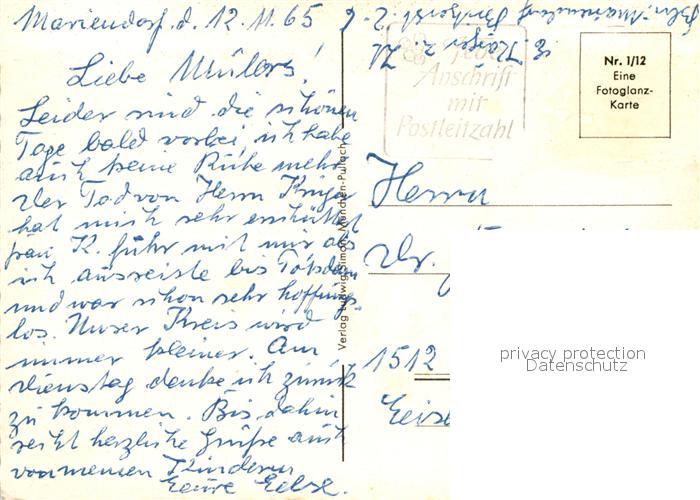 Mariendorf. d. 12.11.65
Liebe Müllers!
Leider sind die schönen
Tage bald vorbei, ich habe
auch keine Ruhe mehr
der Tod von Herrn Kruger
hat mich sehr erschüttert
frau K. fuhr mit mir als
ich ausreiste bis Potsdam
und war schon sehr hoffnungs-
los. Unser Kreis wird
immer kleiner. Am
Dienstag denke ich zurück
zu kommen. Bis dahin
seid herzliche Grüße auch
von meinen Kindern
Eeure
Verlag Ludwig Simon, München-Pullach
Anschrift
mit
Postleitzahl
Nr. 1/12
Eine
Fotoglanz-
Karte
Herrn
Dr.
1512
privacy protection
Datenschutz